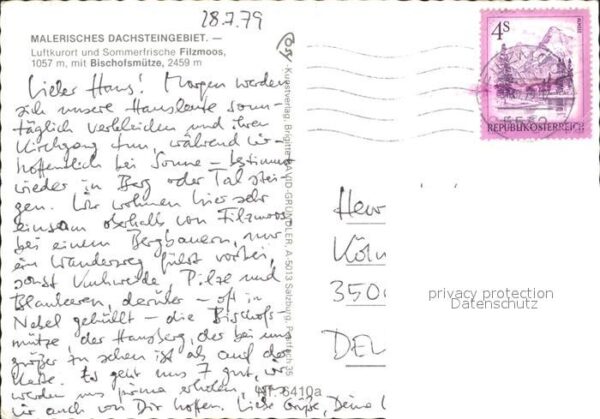 28.7.79
MALERISCHES DACHSTEINGEBIET. —
Luftkurort und Sommerfrische Filzmoos,
1057 m, mit Bischofsmütze, 2459 m
Lieber Hans! Morgen werden
sich unsere Hausleute sonn-
täglich verkleiden und ihren
Kirchgang tun, während wir
hoffentlich bei Sonne – bestimmt
wieder in Berg oder Tal stei-
gen. Wir wohnen hier sehr
einsam oberhalb von Filzmoos
bei einem Bergbauern, nur
ein Wanderweg führt vorbei,
sonst Kuhweide, Pilze und
Blaubeeren, darüber – oft in
Nebel gehüllt – die Bischofs-
mütze, der Hausberg, der bei uns
größer zu sehen ist als auf der
Karte. Es geht uns 7 gut, wir
werden uns prima erholen, was
wir auch von Dir hoffen. Liebe Grüße, Deine
Kunstverlag, Brigitte DAVID-GRÜNDLER, A-5013 Salzburg, Postfach 35
Nr. 6410a
4S
REPUBLIK ÖSTERREICH
Herr
Köln
350
privacy protection
Datenschutz